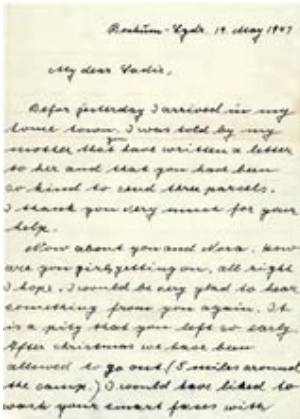 Bochum-Lgdr. 19. May 1947
My dear Sadie,
Befor jesterday I arrived in my
home town. I was told by my
mother that have written a letter
to her and that you have been
so kind to send three parcels.
I thank you very much for your
help.
Now about you and Nora. How
are you girls getting on, all right
I hope. I would be very glad to hear
something from you again. It
is a pity that you left so early
After christmas we have been
allowed to go out (5 miles around
the camp.) I would have liked to
wash your smart faces with